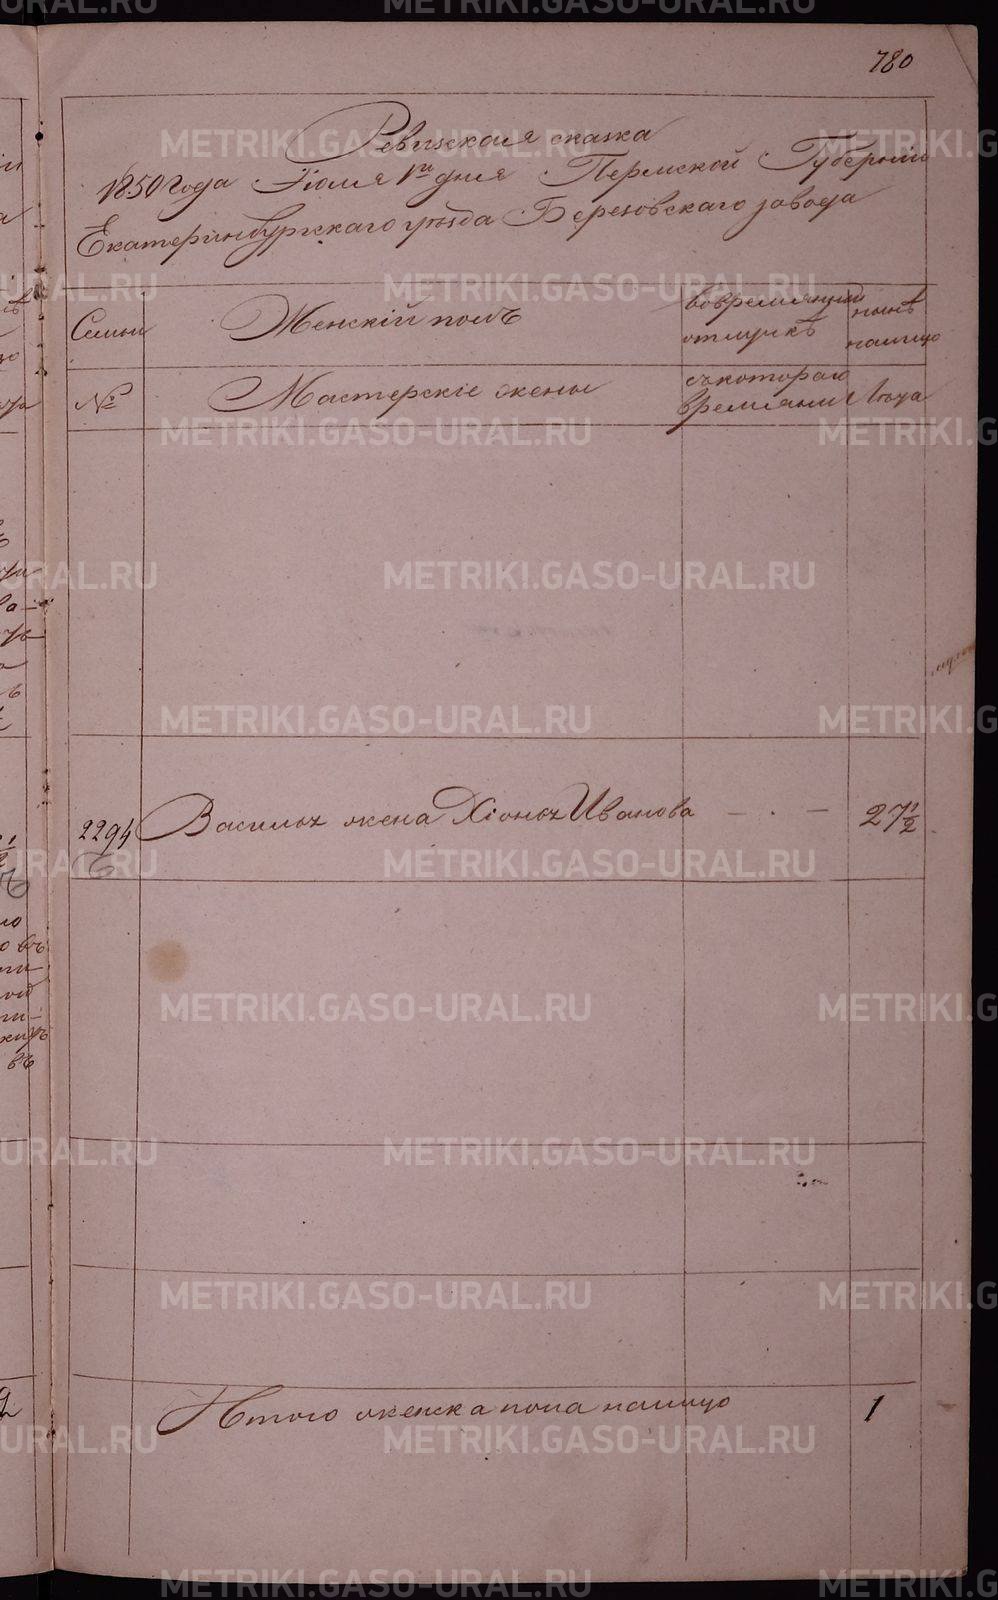 780
Ревизская сказка
1850 года Іюля 1го дня Пермской Губерніи
Екатеринбургскаго уѣзда Березовскаго завода
Семьи
Женскій полъ
вовременной
отлучкѣ
нынѣ
налицо
№
Мастерскіе жены
съкотораго
времяни
Лѣта
2294
Василья жена Хіонья Иванова
27 1/2
Итого женска пола налицо
1
METRIKI.GASO-URAL.RU